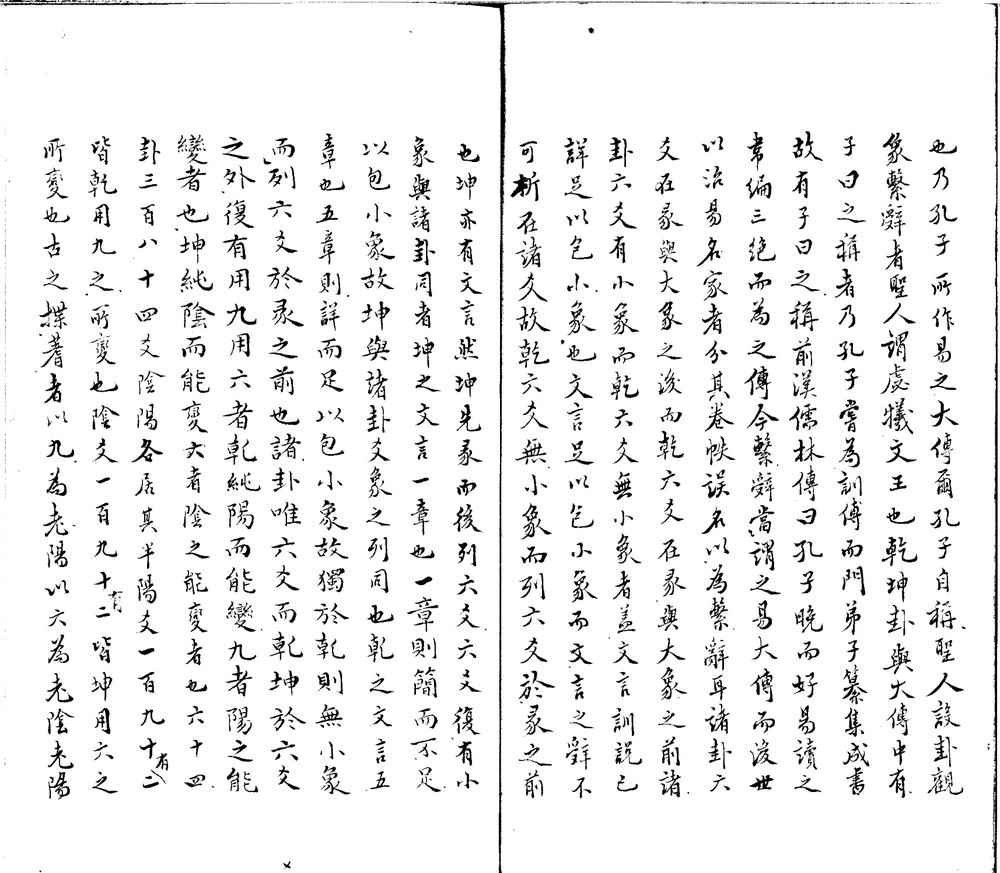 也乃孔子所作易之大傳爾孔子自稱聖人設卦觀
象繫辭者聖人謂虙犧文王也乾坤卦與大傳中有
子曰之稱者乃孔子嘗為訓傳而門弟子纂集成書
故有子曰之稱前漢儒林傳曰孔子晚而好易讀之
韋編三絕而為之傳今繫辭當謂之易大傳而後世
以治易名家者分其卷帙誤名以為繫辭耳諸卦六
爻在彖與大象之後而乾六爻在彖與大象之前諸
卦六爻有小象而乾六爻無小象者盖文言訓說已
詳足以包小象也文言足以包小象而文言之辭不
可析在諸爻故乾六爻無小象而列六爻於彖之前
也坤亦有文言然坤先彖而後列六爻六爻復有小
象與諸卦同者坤之文言一章也一章則簡而不足
以包小象故坤與諸卦爻象之列同也乾之文言五
章也五章則詳而足以包小象故獨於乾則無小象
而列六爻於彖之前也諸卦唯六爻而乾坤於六爻
之外復有用九用六者乾純陽而能變九者陽之能
變者也坤純陰而能變六者陰之能變者也六十四
卦三百八十四爻陰陽各居其半陽爻一百九十有二
皆乾用九之所變也陰爻一百九十有二皆坤用六之
所變也古之揲蓍者以九為老陽以六為老陰老陽